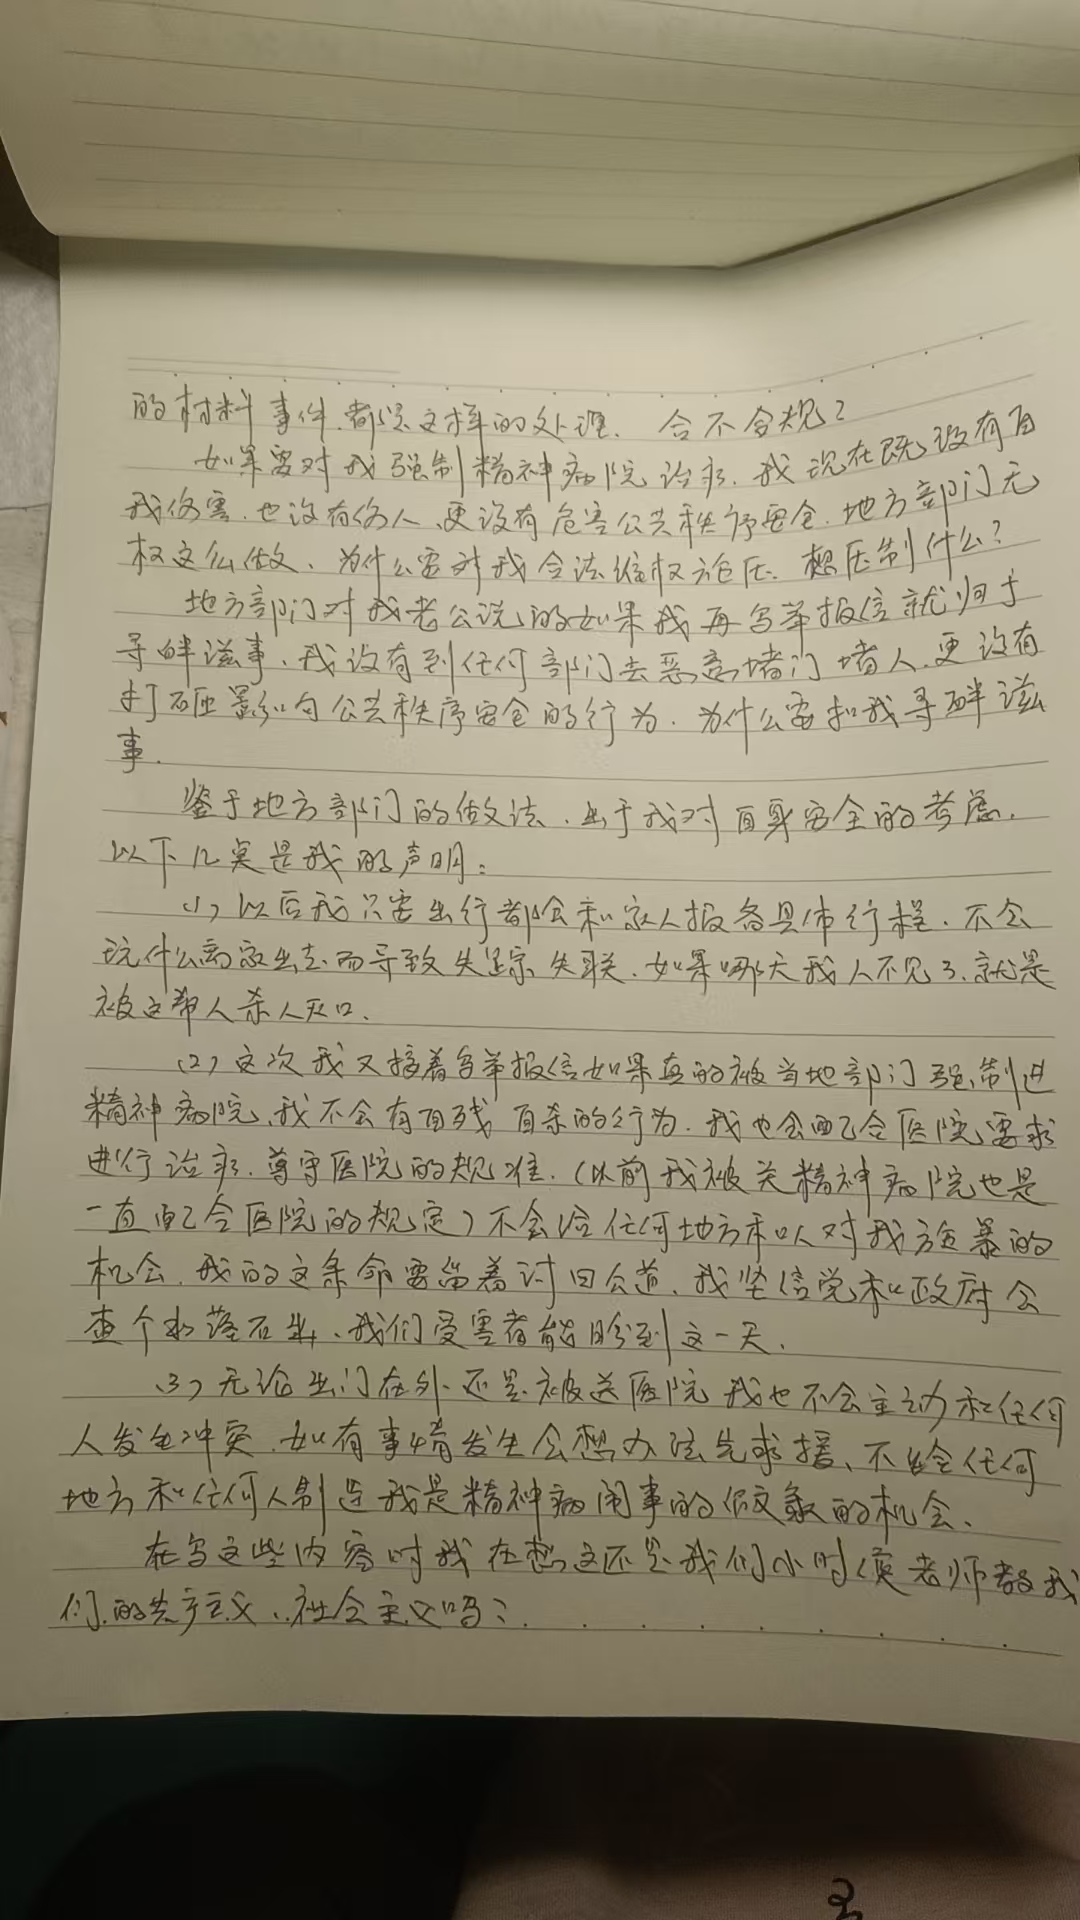 的材料事件.都是这样的处理、合不合规？
如果要对我强制精神病院治疗.我现在既没有自
我伤害.也没有伤人、更没有危害公共秩序安全.地方部门无
权这么做、为什么要对我合法维权施压、想压制什么？
地方部门对我老公说的如果我再写举报信就归于
寻衅滋事、我没有到任何部门去恶意堵门堵人.更没有
打砸影响公共秩序安全的行为.为什么要扣我寻衅滋
事.
鉴于地方部门的做法、出于我对自身安全的考虑.
以下几点是我的声明：
(1)以后我只要出行都会和家人报备具体行程、不会
玩什么离家出走而导致失踪失联.如果哪天我人不见了.就是
被这帮人杀人灭口.
(2)这次我又接着写举报信如果真的被当地部门强制进
精神病院、我不会有自残自杀的行为.我也会配合医院要求
进行治疗.尊守医院的规准.(以前我被关精神病院也是
一直配合医院的规定)不会给任何地方和人对我施暴的
机会.我的这条命要留着讨回公道.我坚信党和政府会
查个水落石出、我们受害者能盼到这一天.
(3)无论出门在外还是被送医院我也不会主动和任何
人发生冲突.如有事情发生会想办法先求援、不给任何
地方和任何人制造我是精神病闹事的假象的机会、
在写这些内容时我在想这还是我们小时候老师教我
们的共产主义、社会主义吗？
3